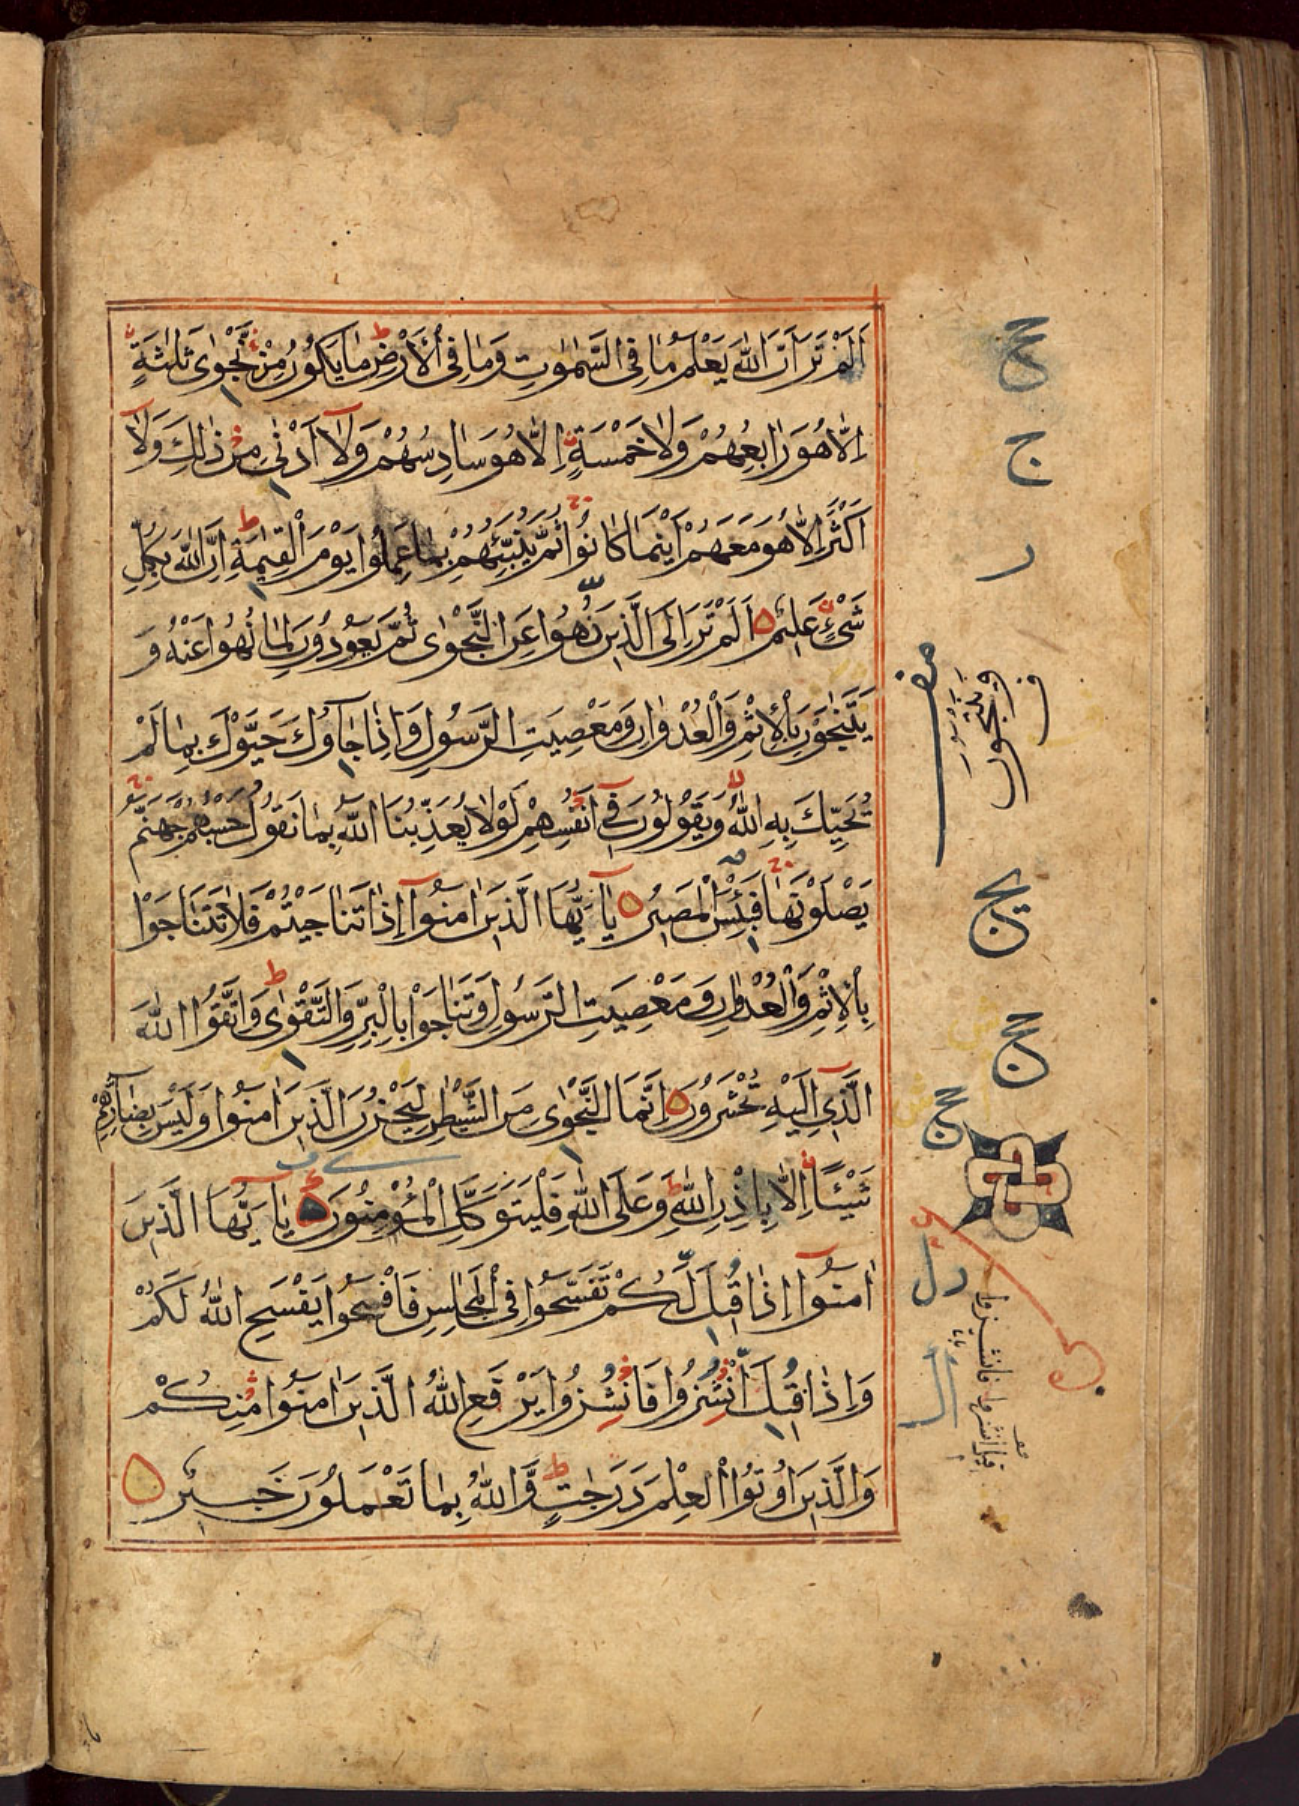 اَلَمْ تَرَ اَنَّ اللّٰهَ يَعْلَمُ مَا فِى السَّمٰوٰتِ وَمَا فِى الْاَرْضِ ط مَا يَكُوْنُ مِنْ نَّجْوٰى ثَلٰثَةٍ
اِلَّا هُوَ رَابِعُهُمْ وَلَا خَمْسَةٍ اِلَّا هُوَ سَادِسُهُمْ وَلَآ اَدْنٰى مِنْ ذٰلِكَ وَلَآ
اَكْثَرَ اِلَّا هُوَ مَعَهُمْ اَيْنَمَا كَانُوْا ثُمَّ يُنَبِّئُهُمْ بِمَا عَمِلُوْا يَوْمَ الْقِيٰمَةِ ط اِنَّ اللّٰهَ بِكُلِّ
شَىْءٍ عَلِيْمٌ ۝ اَلَمْ تَرَ اِلَى الَّذِيْنَ نُهُوْا عَنِ النَّجْوٰى ثُمَّ يَعُوْدُوْنَ لِمَا نُهُوْا عَنْهُ وَ
يَتَنٰجَوْنَ بِالْاِثْمِ وَالْعُدْوَانِ وَمَعْصِيَتِ الرَّسُوْلِ وَاِذَا جَآؤُكَ حَيَّوْكَ بِمَا لَمْ
يُحَيِّكَ بِهِ اللّٰهُ وَيَقُوْلُوْنَ فِىْٓ اَنْفُسِهِمْ لَوْلَا يُعَذِّبُنَا اللّٰهُ بِمَا نَقُوْلُ حَسْبُهُمْ جَهَنَّمُ
يَصْلَوْنَهَا فَبِئْسَ الْمَصِيْرُ ۝ يٰٓاَيُّهَا الَّذِيْنَ اٰمَنُوْٓا اِذَا تَنَاجَيْتُمْ فَلَا تَتَنَاجَوْا
بِالْاِثْمِ وَالْعُدْوَانِ وَمَعْصِيَتِ الرَّسُوْلِ وَتَنَاجَوْا بِالْبِرِّ وَالتَّقْوٰى ط وَاتَّقُوا اللّٰهَ
الَّذِىْٓ اِلَيْهِ تُحْشَرُوْنَ ۝ اِنَّمَا النَّجْوٰى مِنَ الشَّيْطٰنِ لِيَحْزُنَ الَّذِيْنَ اٰمَنُوْا وَلَيْسَ بِضَآرِّهِمْ
شَيْئًا اِلَّا بِاِذْنِ اللّٰهِ ط وَعَلَى اللّٰهِ فَلْيَتَوَكَّلِ الْمُؤْمِنُوْنَ ۝ يٰٓاَيُّهَا الَّذِيْنَ
اٰمَنُوْٓا اِذَا قِيْلَ لَكُمْ تَفَسَّحُوْا فِى الْمَجٰلِسِ فَافْسَحُوْا يَفْسَحِ اللّٰهُ لَكُمْ
وَاِذَا قِيْلَ انْشُزُوْا فَانْشُزُوْا يَرْفَعِ اللّٰهُ الَّذِيْنَ اٰمَنُوْا مِنْكُمْ
وَالَّذِيْنَ اُوْتُوا الْعِلْمَ دَرَجٰتٍ ط وَاللّٰهُ بِمَا تَعْمَلُوْنَ خَبِيْرٌ ۝
ج
ر
ف
وينتجون
ج